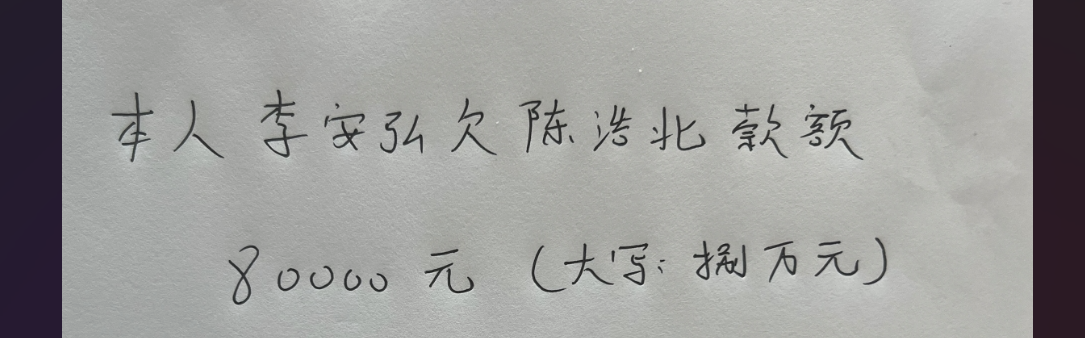 本人李安弘欠陈浩北款额
80000元（大写：捌万元）